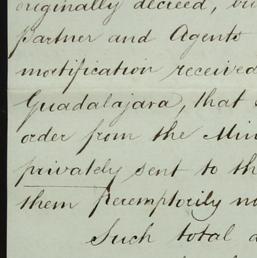 originally decreed, but
partner and Agents
mortification received
Guadalajara, that
order from the Min
privately sent to th
them peremptorily
Such total